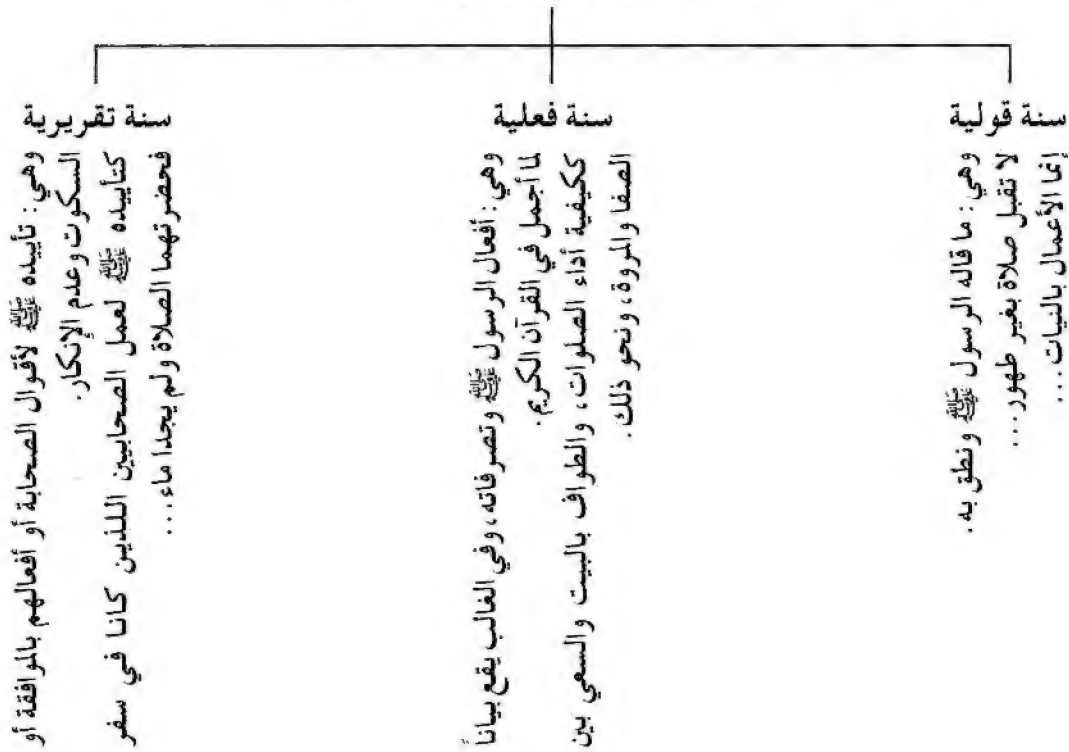 سنة قولية
وهي : ما قاله الرسول ﷺ ونطق به .
لا تقبل صلاة بغير طهور ....
إنما الأعمال بالنيات ...
سنة فعلية
وهي : أفعال الرسول ﷺ وتصرفاته ، وفي الغالب يقع بياناً
لما أجمل في القرآن الكريم .
ككيفية أداء الصلوات ، والطواف بالبيت والسعي بين
الصفا والمروة ، ونحو ذلك .
سنة تقريرية
وهي : تأييده ﷺ لأقوال الصحابة أو أفعالهم بالموافقة أو
السكوت وعدم الإنكار .
كتأييده ﷺ لعمل الصحابيين اللذين كانا في سفر
فحضرتهما الصلاة ولم يجدا ماء ...